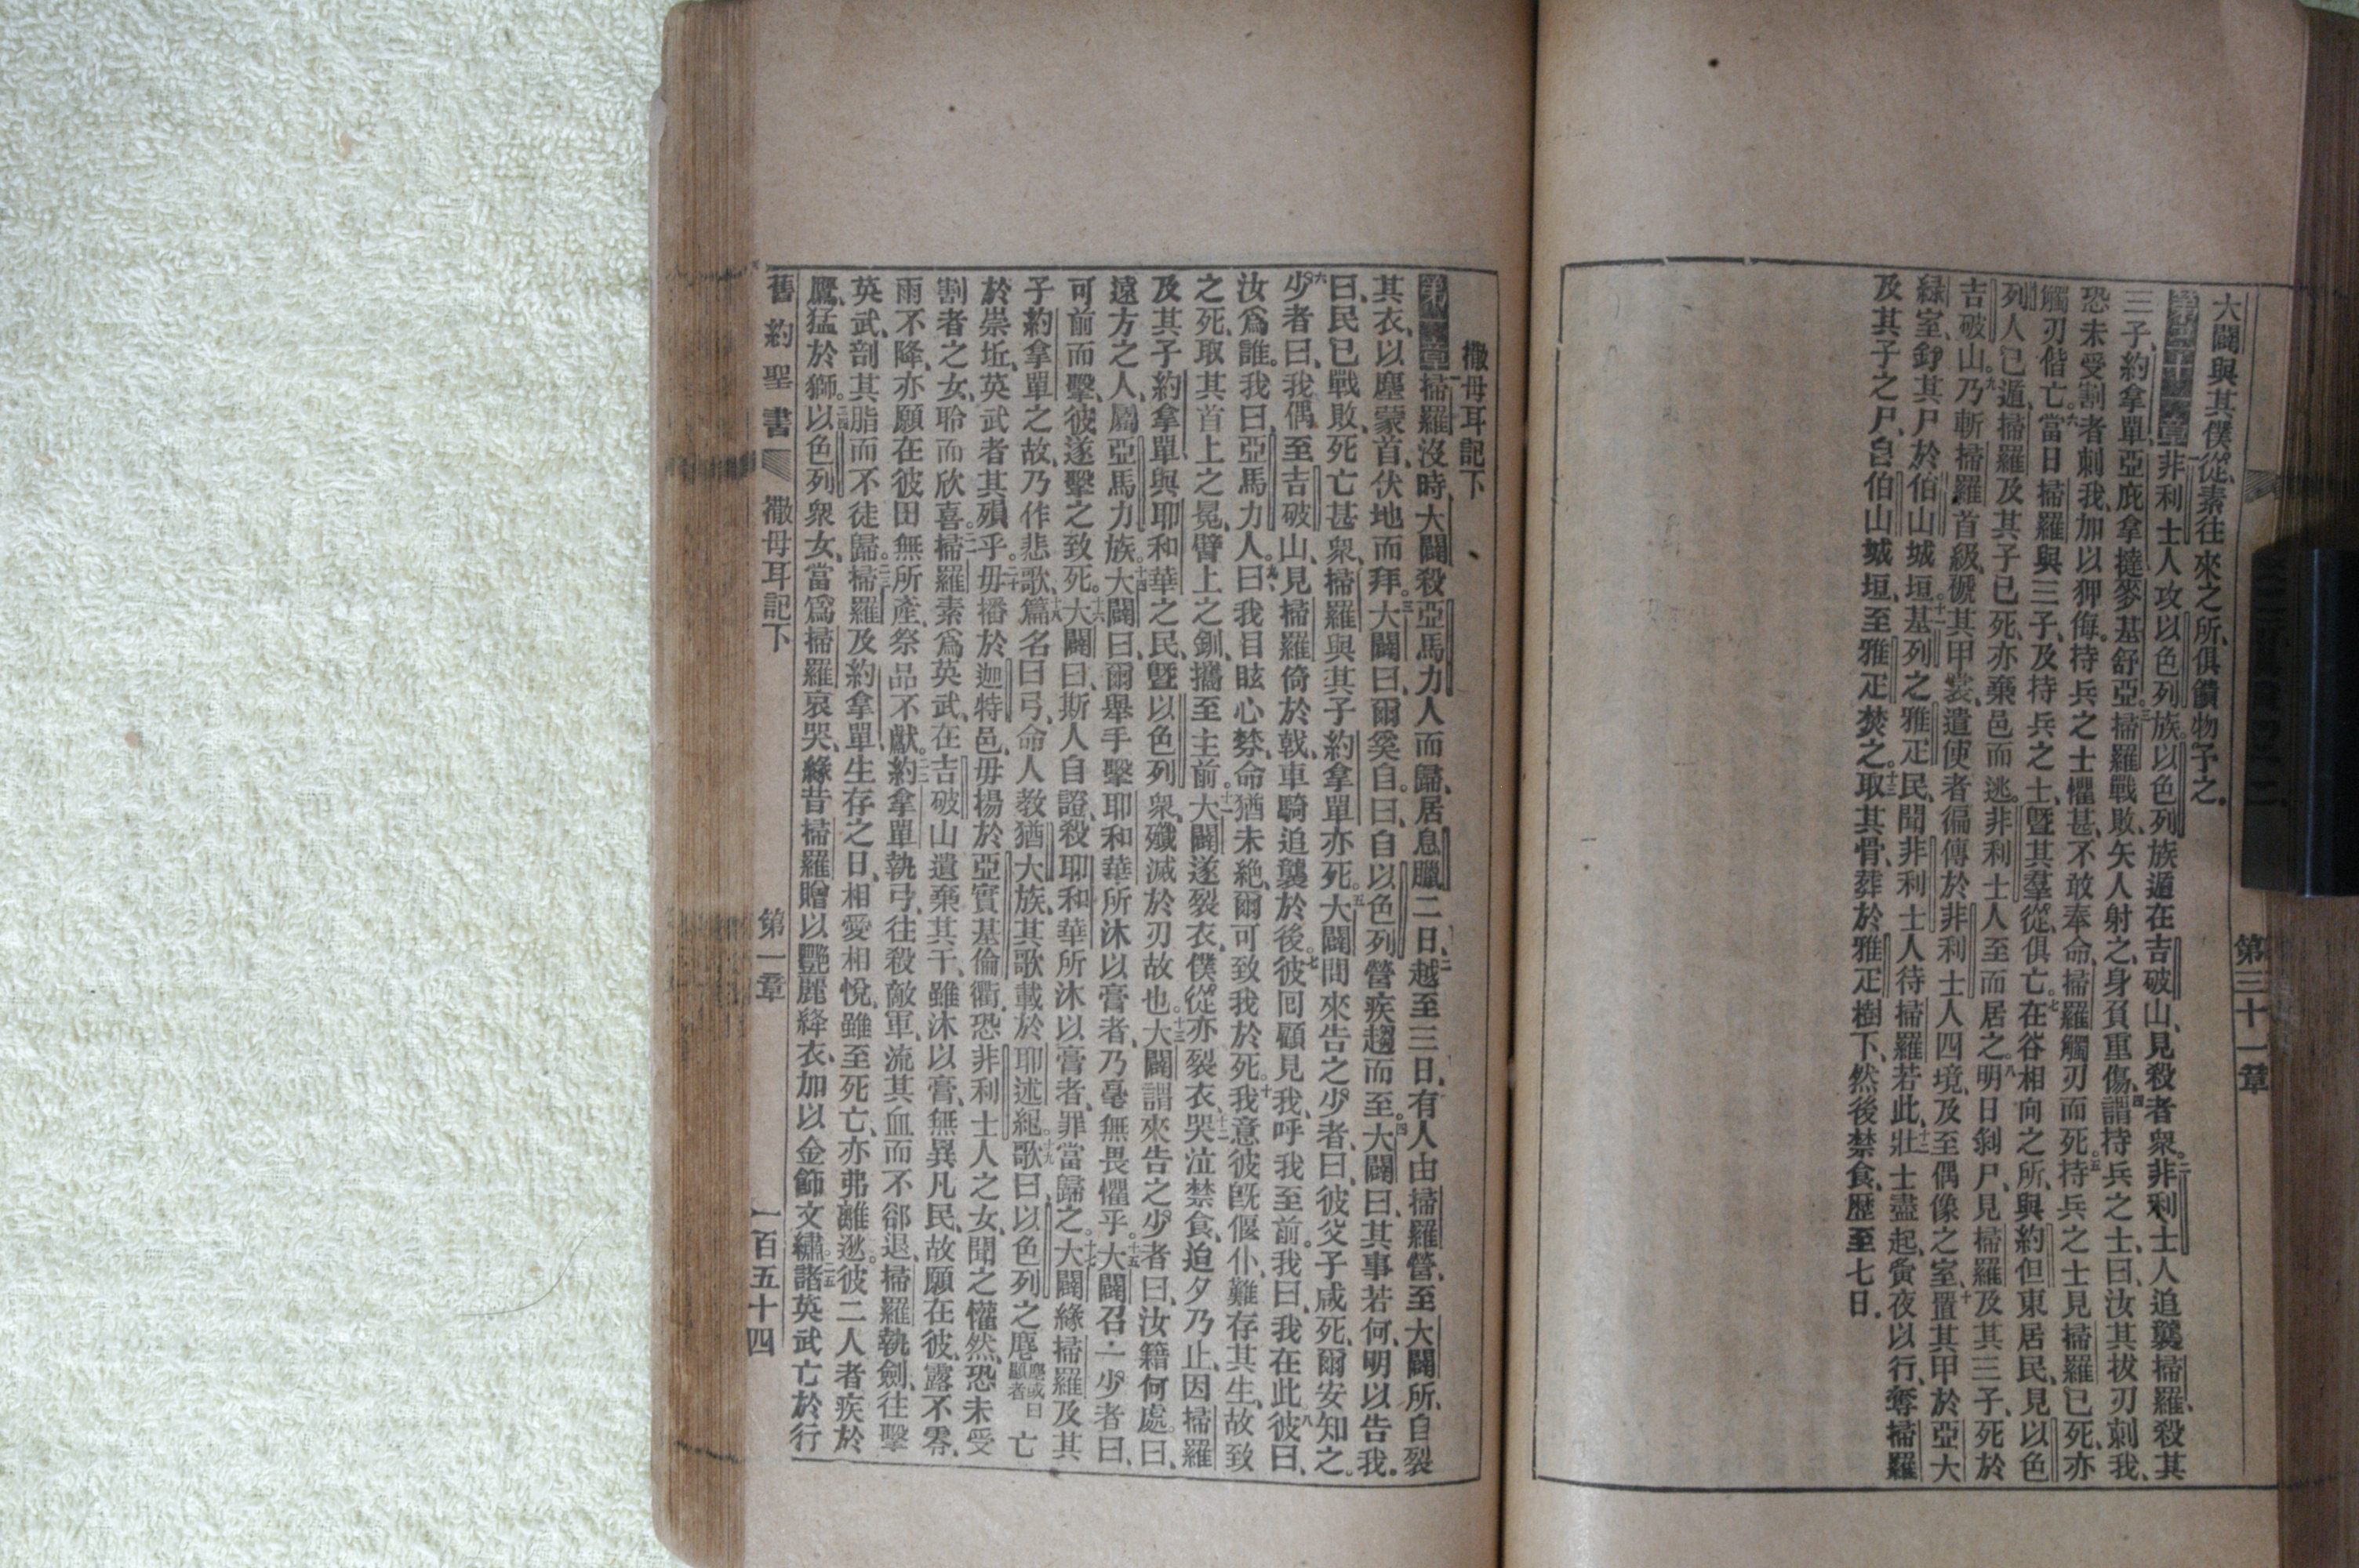 大闢與其僕從、素往來之所、俱饋物予之。
第三十一章 非利士人攻以色列族。以色列族遁在吉破山、見殺者衆。二非利士人追襲掃羅、殺其
三子、約拿單、亞庇拿撻、麥基舒亞。三掃羅戰敗、矢人射之、身負重傷。四謂持兵之士、曰、汝其拔刃刺我、
恐未受割者刺我、加以狎侮。持兵之士懼甚、不敢奉命、掃羅觸刃而死。五持兵之士見掃羅已死、亦
觸刃偕亡。六當日掃羅與三子、及持兵之士、曁其羣從、俱亡。七在谷相向之所、與約但東居民、見以色
列人已遁、掃羅及其子已死、亦棄邑而逃。非利士人至而居之。八明日剝尸、見掃羅及其三子、死於
吉破山。九乃斬掃羅首級、褫其甲裳、遣使者徧傳於非利士人四境、及至偶像之室、十置其甲於亞大
綠室、釘其尸於伯山城垣。十一基列之雅疋民、聞非利士人待掃羅若此、十二壯士盡起、夤夜以行、奪掃羅
及其子之尸、自伯山城垣、至雅疋焚之。十三取其骨、葬於雅疋樹下、然後禁食、歷至七日。
第三十一章
撒母耳記下
第一章 掃羅沒時、大闢殺亞馬力人而歸、居息臘二日、二越至三日、有人由掃羅營、至大闢所、自裂
其衣、以塵蒙首、伏地而拜。三大闢曰、爾奚自。曰、自以色列營疾趨而至。四大闢曰、其事若何、明以告我。
曰、民已戰敗、死亡甚衆、掃羅與其子約拿單亦死。五大闢問來告之少者、曰、彼父子咸死、爾安知之。
六少者曰、我偶至吉破山、見掃羅倚於戟、車騎追襲於後。七彼囘顧見我、呼我至前。我曰、我在此。八彼曰、
汝爲誰。我曰、亞馬力人。九曰、我目眩心棼、命猶未絕、爾可致我於死。十我意彼旣偃仆、難存其生、故致
之死、取其首上之冕、臂上之釧、攜至主前。十一大闢遂裂衣、僕從亦裂衣、十二哭泣禁食、迨夕乃止、因掃羅
及其子約拿單、與耶和華之民、曁以色列衆、殲滅於刃故也。十三大闢謂來告之少者曰、汝籍何處。曰、
遠方之人、屬亞馬力族。十四大闢曰、爾舉手擊耶和華所沐以膏者、乃毫無畏懼乎。十五大闢召一少者曰、
可前而擊、彼遂擊之致死。十六大闢曰、斯人自證、殺耶和華所沐以膏者、罪當歸之。十七大闢緣掃羅及其
子約拿單之故、乃作悲歌、十八篇名曰弓、命人教猶大族、其歌載於耶述紀。十九歌曰、以色列之麀麀或曰顯者亡
於崇坵、英武者其殞乎。二十毋播於迦特邑、毋揚於亞實基倫衢、恐非利士人之女、聞之懽然、恐未受
割者之女、聆而欣喜。二一掃羅素爲英武、在吉破山遺棄其干、雖沐以膏、無異凡民、故願在彼、露不零、
雨不降、亦願在彼田無所產、祭品不獻。二二約拿單執弓、往殺敵軍、流其血而不郤退、掃羅執劍、往擊
英武、剖其脂而不徒歸。二三掃羅及約拿單、生存之日、相愛相悅、雖至死亡、亦弗離逖。彼二人者疾於
鷹、猛於獅。二四以色列衆女、當爲掃羅哀哭、緣昔掃羅贈以艷麗絳衣、加以金飾文繡。二五諸英武亡於行
舊約聖書 撒母耳記下 第一章 一百五十四